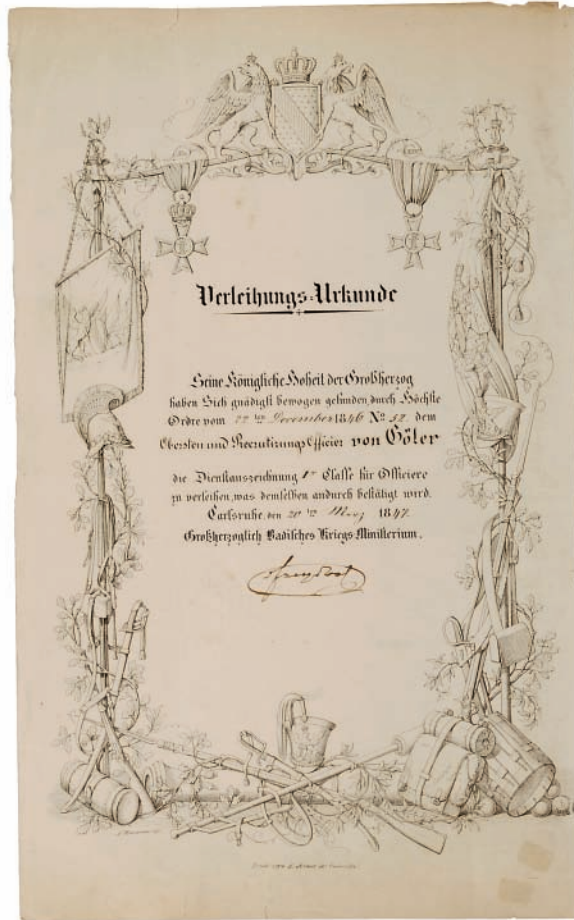 Verleihungs-Urkunde
Seine Königliche Hoheit der Großherzog
haben Sich gnädigst bewogen gefunden, durch Höchste
Ordre vom 22ten December 1846 No 52 dem
Obersten und Recrutirungs Officier von Göler
die Dienstauszeichnung 1r Classe für Officiere
zu verleihen, was demselben andurch bestätigt wird.
Carlsruhe, den 20ten März 1847.
Großherzoglich Badisches Kriegs Ministerium.